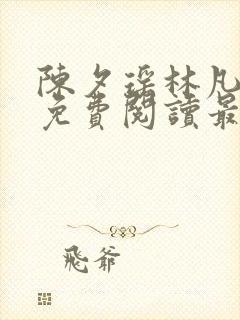 陳夕瑶林凡
免費閱讀最
飛爺